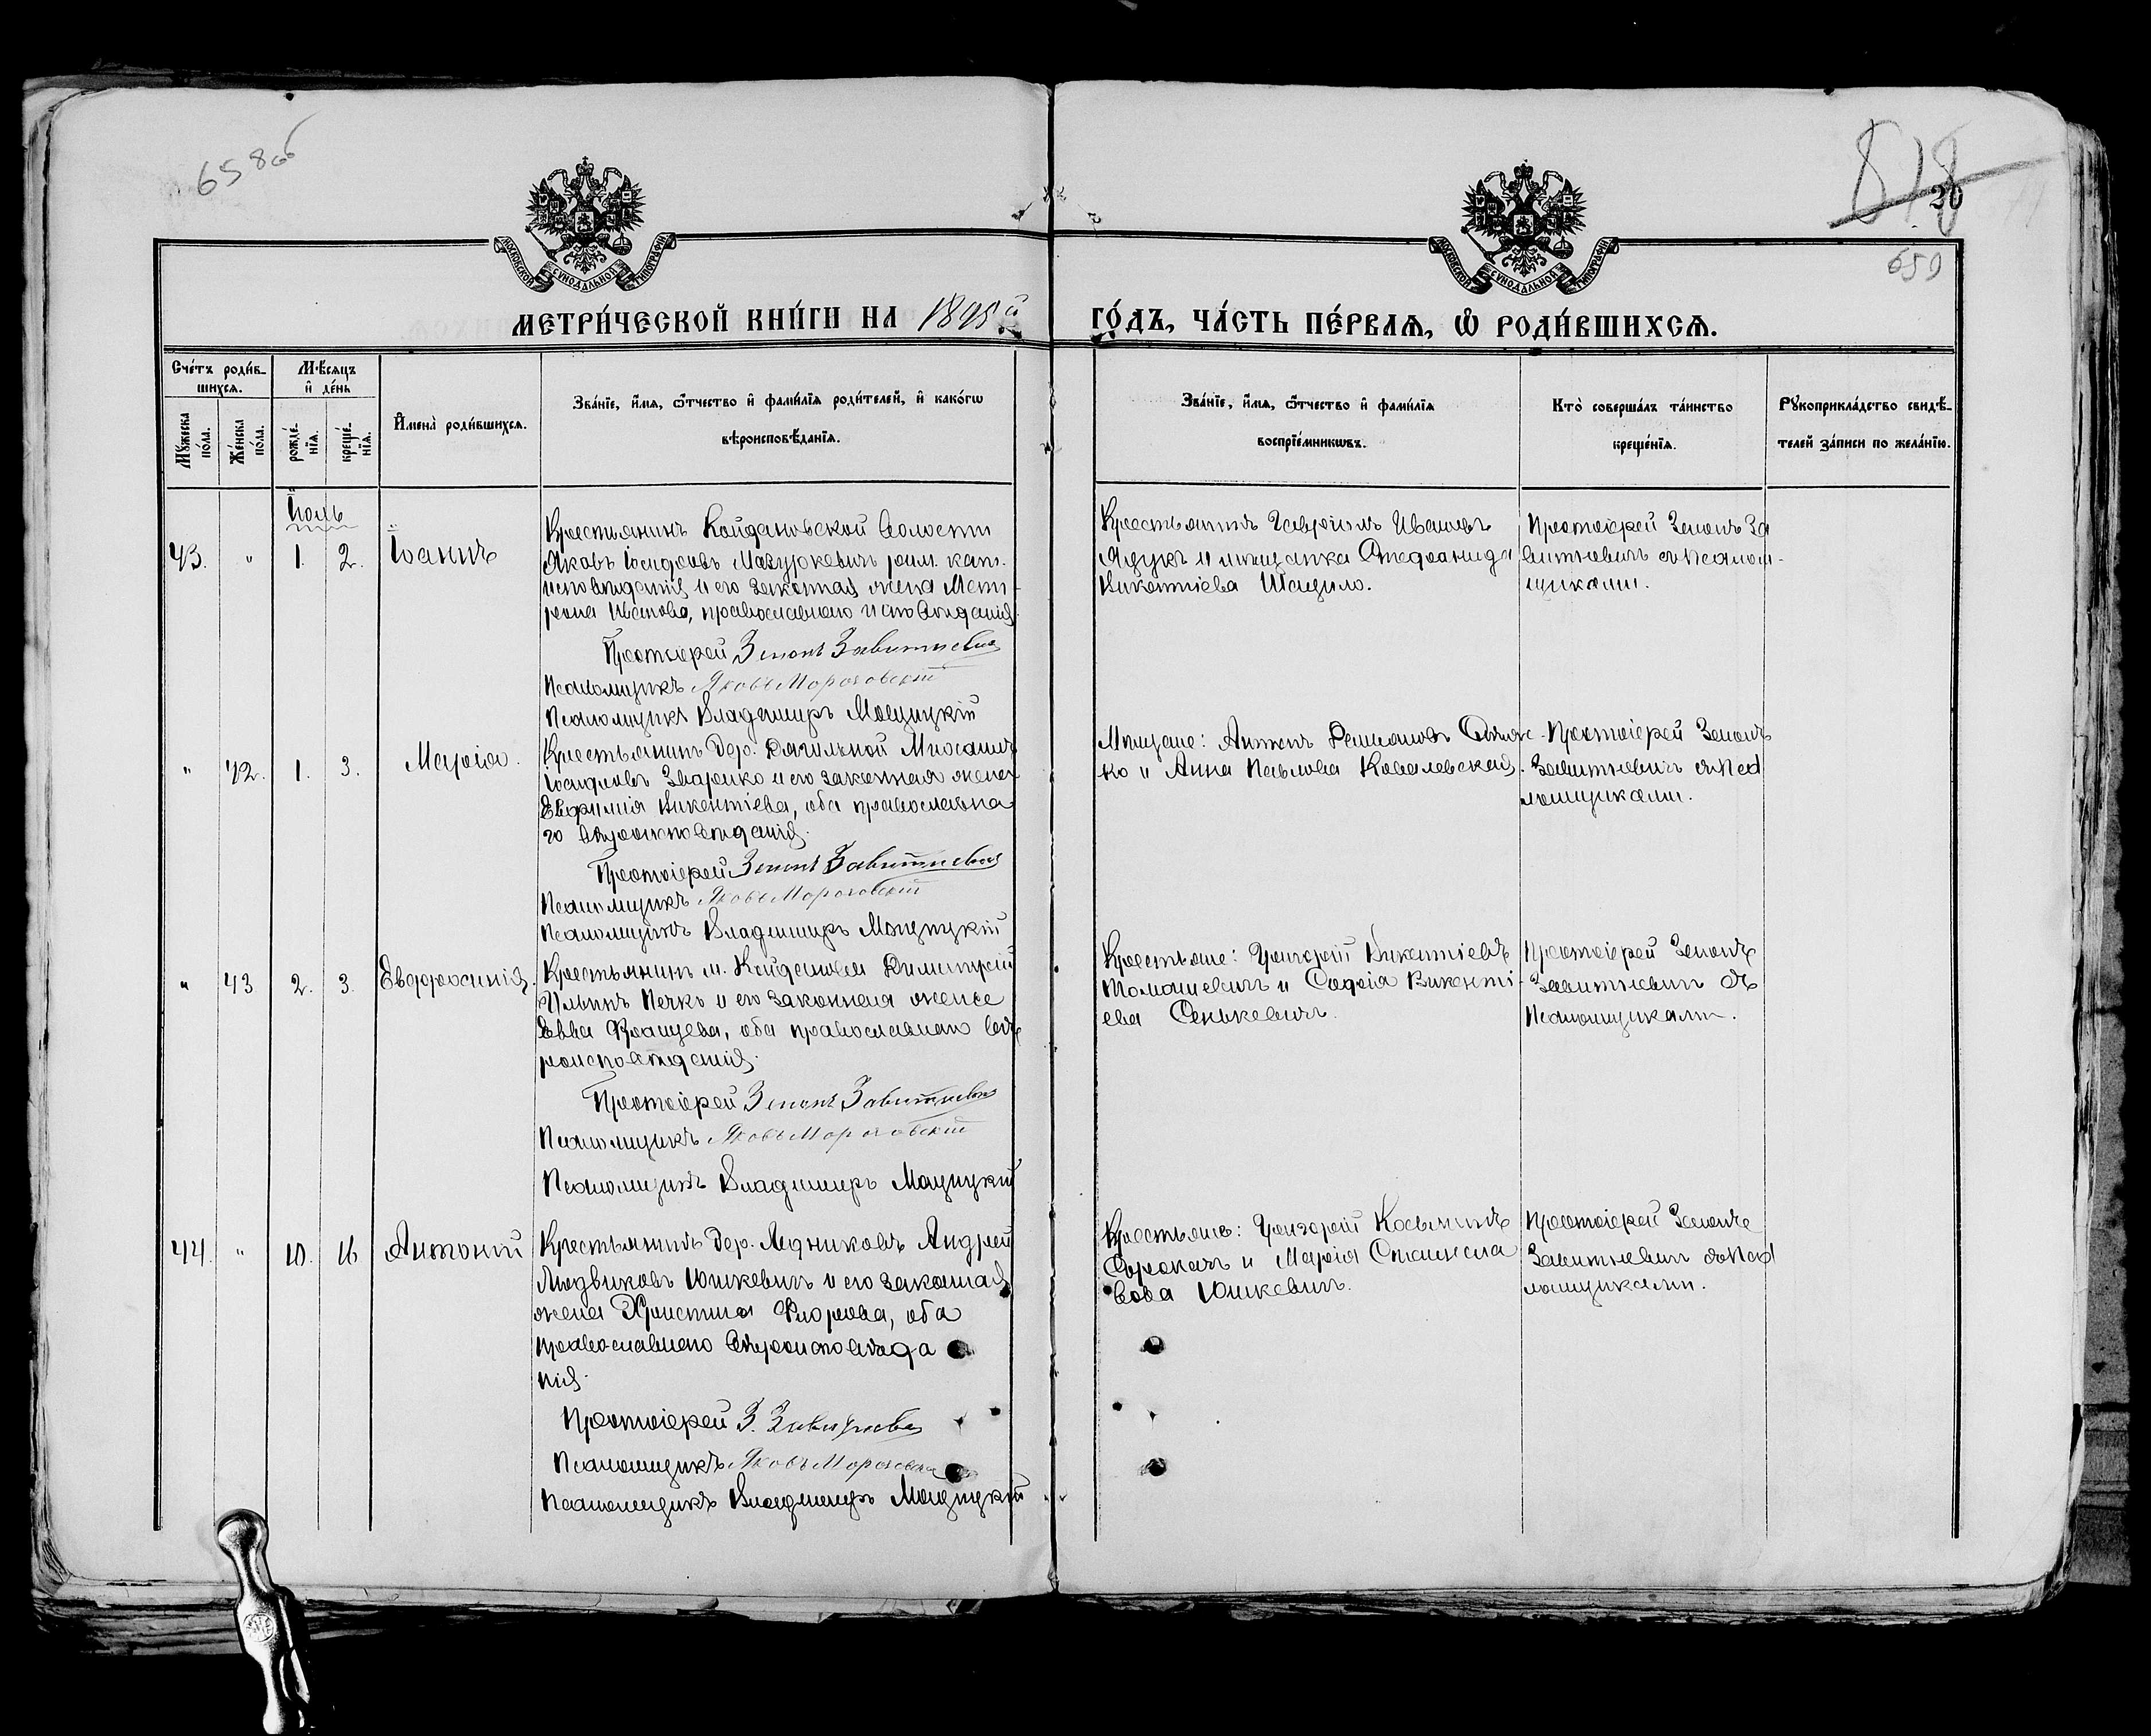 658об
20
659
МОСКОВСКОЙ СУНОДАЛЬНОЙ ТИПОГРАФІИ
МОСКОВСКОЙ СУНОДАЛЬНОЙ ТИПОГРАФІИ
МЕТРИ́ЧЕСКОЙ КНИ́ГИ НА 1895й
ГО́ДЪ, ЧА́СТЬ ПЕ́РВАѦ, Ѡ РОДИ́ВШИХСѦ.
Сче́тъ роди́в-
шихсѧ.
Мѣ́сѧцъ
и҆ де́нь
Мꙋ́жеска по́ла.
Же́нска по́ла.
рожде́-
нїѧ.
креще́-
нїѧ.
И҆мена̀ роди́вшихсѧ.
Зва́нїе, и҆́мѧ, ѻ҆́тчество и҆ фамі́лїѧ роди́телей, и҆ како́гѡ
вѣроисповѣ́данїѧ.
Зва́нїе, и҆́мѧ, ѻ҆́тчество и҆ фамі́лїѧ
воспрїе́мникѡвъ.
Кто̀ соверша́лъ та́инство
креще́нїѧ.
Рꙋкоприкла́дство свидѣ́-
телей за́писи по жела́нїю.
Іюль
43. " 1. 2. Іоаннъ
Крестьянинъ Койдановской волости
Яковъ Іосифовъ Мазуркевичъ рим. кат.
исповѣданія и его законная жена Мат-
рона Иванова, православнаго исповѣданія.
Протоіерей Зенонъ Завитневичъ
Псаломщикъ Яковъ Морозовскій
Псаломщикъ Владиміръ Мацицкій
Крестьянинъ Гавріилъ Ивановъ
и мѣщанка Стефанида
Викентіева Шацило.
Протоіерей Зенонъ За
витневичъ съ псалом-
щиками.
" 42. 1. 3. Марія.
Крестьянинъ дер.
Іосифовъ Захаренко и его законная жена
Евфимія Викентіева, оба православна
го вѣроисповѣданія.
Протоіерей Зенонъ Завитневичъ
Псаломщикъ Яковъ Морозовскій
Псаломщикъ Владиміръ Мацицкій
Мѣщане: Антонъ
ко и Анна Павлова Ковалевская.
Протоіерей Зенонъ
Завитневичъ съ пса
ломщиками.
" 43 2. 3. Евфросинія.
Крестьянинъ м. Койданова Димитрій
Ильинъ Печко и его законная жена
Евва Францева, оба православнаго вѣ
роисповѣданія.
Протоіерей Зенонъ Завитневичъ
Псаломщикъ Яковъ Морозовскій
Псаломщикъ Владиміръ Мацицкій
Крестьяне: Григорій Викентіевъ
Томашевичъ и Софія Викенті-
ева Сенькевичъ.
Протоіерей Зенонъ
Завитневичъ съ
псаломщиками.
44. " 10. 16 Антоній
Крестьянинъ дер. Ледниковъ Андрей
Людвиковъ Юшкевичъ и его законная
жена Христина Флорова, оба
православнаго вѣроисповѣда
нія.
Протоіерей З. Завитневичъ
Псаломщикъ Яковъ Морозовскій
Псаломщикъ Владиміръ Мацицкій
Крестьяне: Григорій Косьминъ
Сорокачъ и Марія Станисла
вова Юшкевичъ.
Протоіерей Зенонъ
Завитневичъ съ пса
ломщиками.